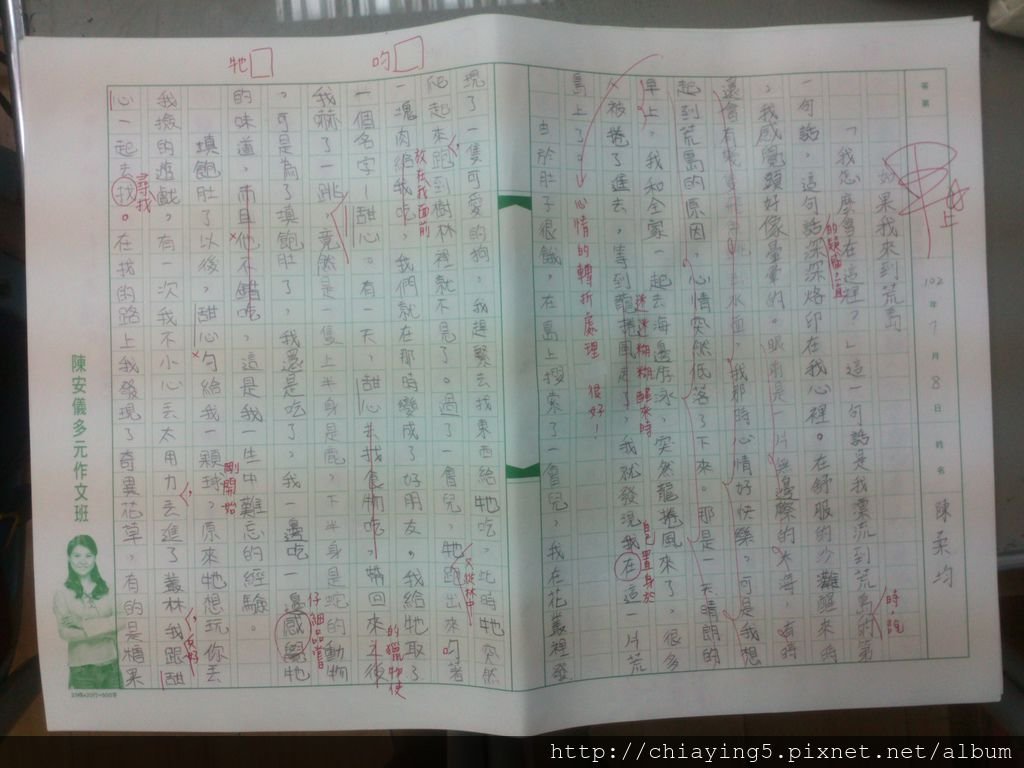 甲
好上
102年7月8日 姓名 陳柔均
如果我來到荒島
「我怎麼會在這裡?」這一句話是我漂流到荒島的第
時,腦
一句話,這句話深深烙印在我心裡。在舒服的沙灘醒來時
,我感覺頭好像暈暈的。眼前是一片無邊際的大海,有時
還會有
水面,我那時心情好快樂,可是我想
起到荒島的原因,心情突然低落了下來。那是一天晴朗的
早上,我和全家一起去海邊游泳,突然龍捲風來了,很多
迷迷糊糊醒來時
被捲了進去,等到龍捲風走了,我就發現我在這一片荒
自己置身於
島上了。
心情的轉折處理 很好!
由於肚子很餓,在島上搜索了一會兒,我在花叢裡發
現了一隻可愛的狗,我趕緊去找東西給牠吃,此時牠突然
爬起來跑到樹林裡就不見了。過了一會兒,牠跑出來叼著
又從林中
一塊肉給我吃,我們就在那時變成了好朋友,我給牠取了
放在我面前
一個名字—甜心。有一天,甜心去找食物吃,帶回來之後
的獵物使
我嚇了一跳,竟然是一隻上半身是鹿,下半身是蛇的動物
,可是為了填飽肚子,我還是吃了,我一邊吃一邊感覺牠
仔細品嘗
的味道,而且他不錯吃,這是我一生中難忘的經驗。
填飽肚子以後,甜心叼給我一顆球,原來牠想玩你丟
剛開始
我撿的遊戲,有一次我不小心丟太用力丟進了叢林,我跟甜
只好
心一起去找。在找的路上我發現了奇異花草,有的是糖果
尋找
牠
叼
陳安儀多元作文班
http://chiaying5.pixnet.net/album